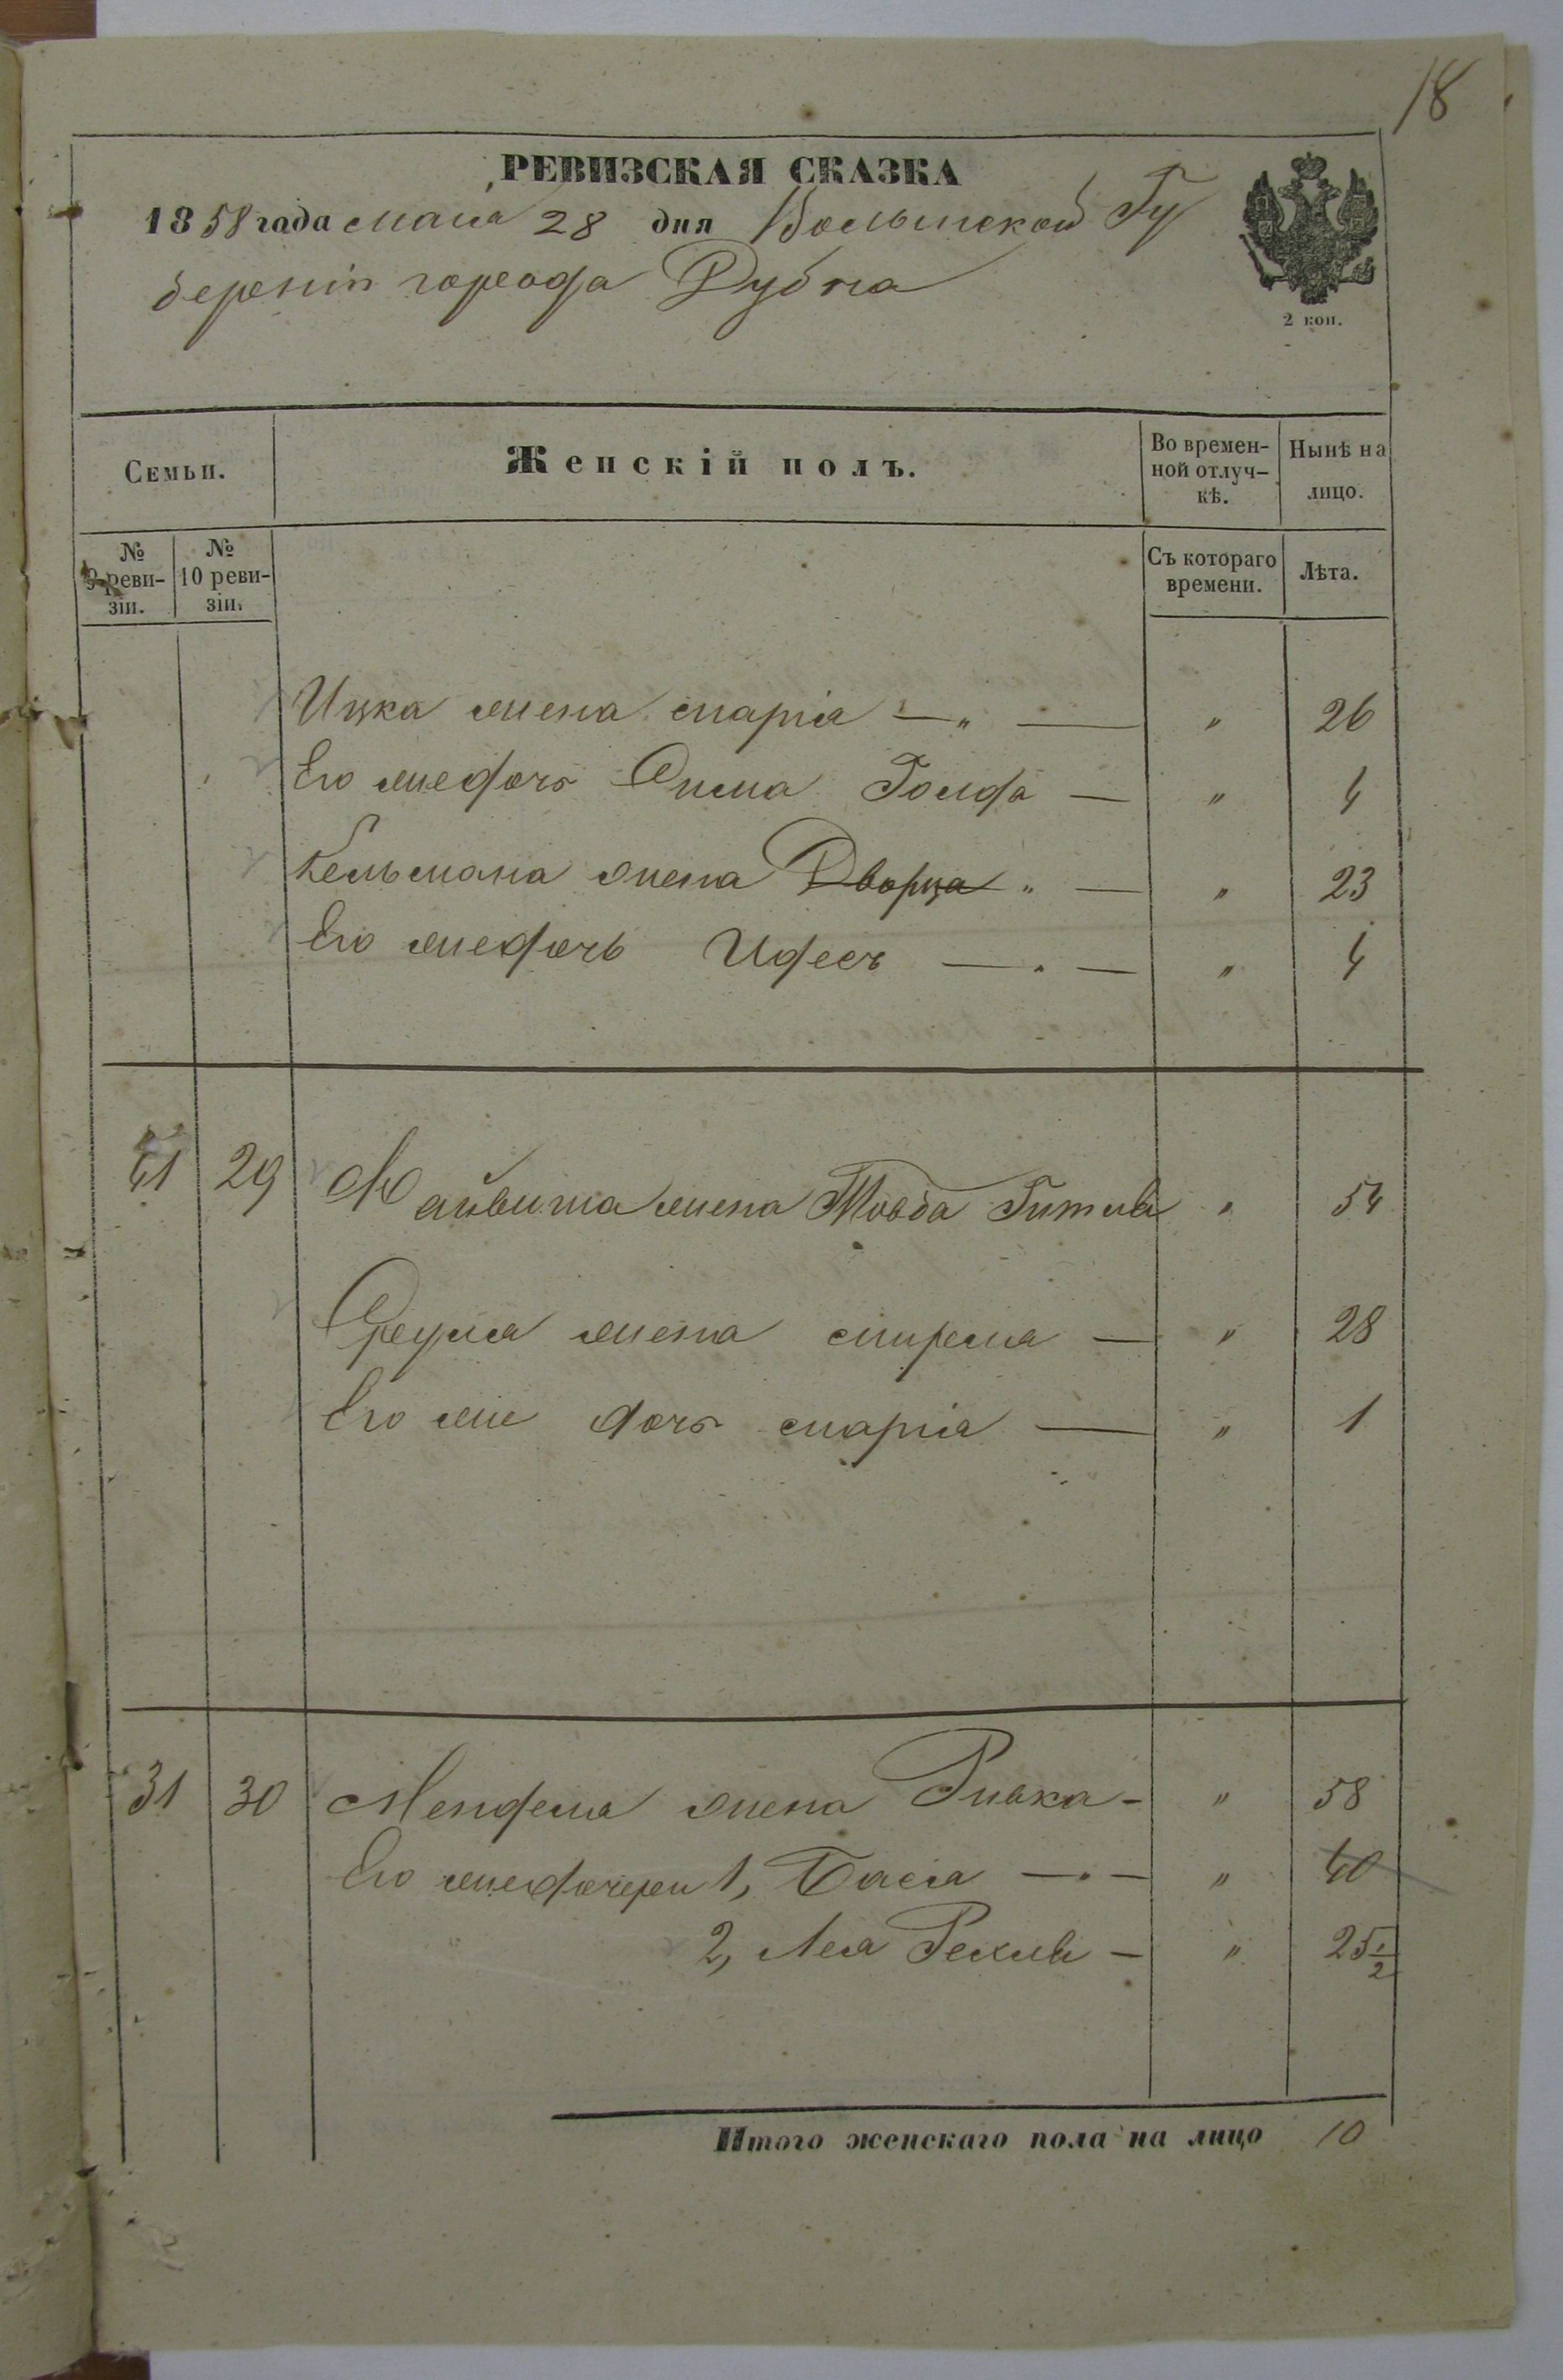 18
РЕВИЗСКАЯ СКАЗКА
1858 года мая 28 дня Волынской Гу
берніи города Дубна
2 коп.
Семьи.
Женскій полъ.
Во времен-
ной отлуч-
кѣ.
Нынѣ на
лицо.
№
9 реви-
зіи.
№
10 реви-
зіи.
Съ котораго
времени.
Лѣта.
Ицка жена марія — „ — „ 26
Его же дочь Фима Голда — „ 4
Кельмана жена Дворца „ — „ 23
Его же дочь Идесъ — . — „ 4
41 29 жена Товба Гитля „ 54
Фреуля жена мирля — „ 28
Его же дочь марія — „ 1
31 30 Менделя жена Ривка - „ 58
Его же дочери 1, Бася — . — „ 40
2, Лея Рехля — „ 25 1/2
Итого женскаго пола на лицо 10